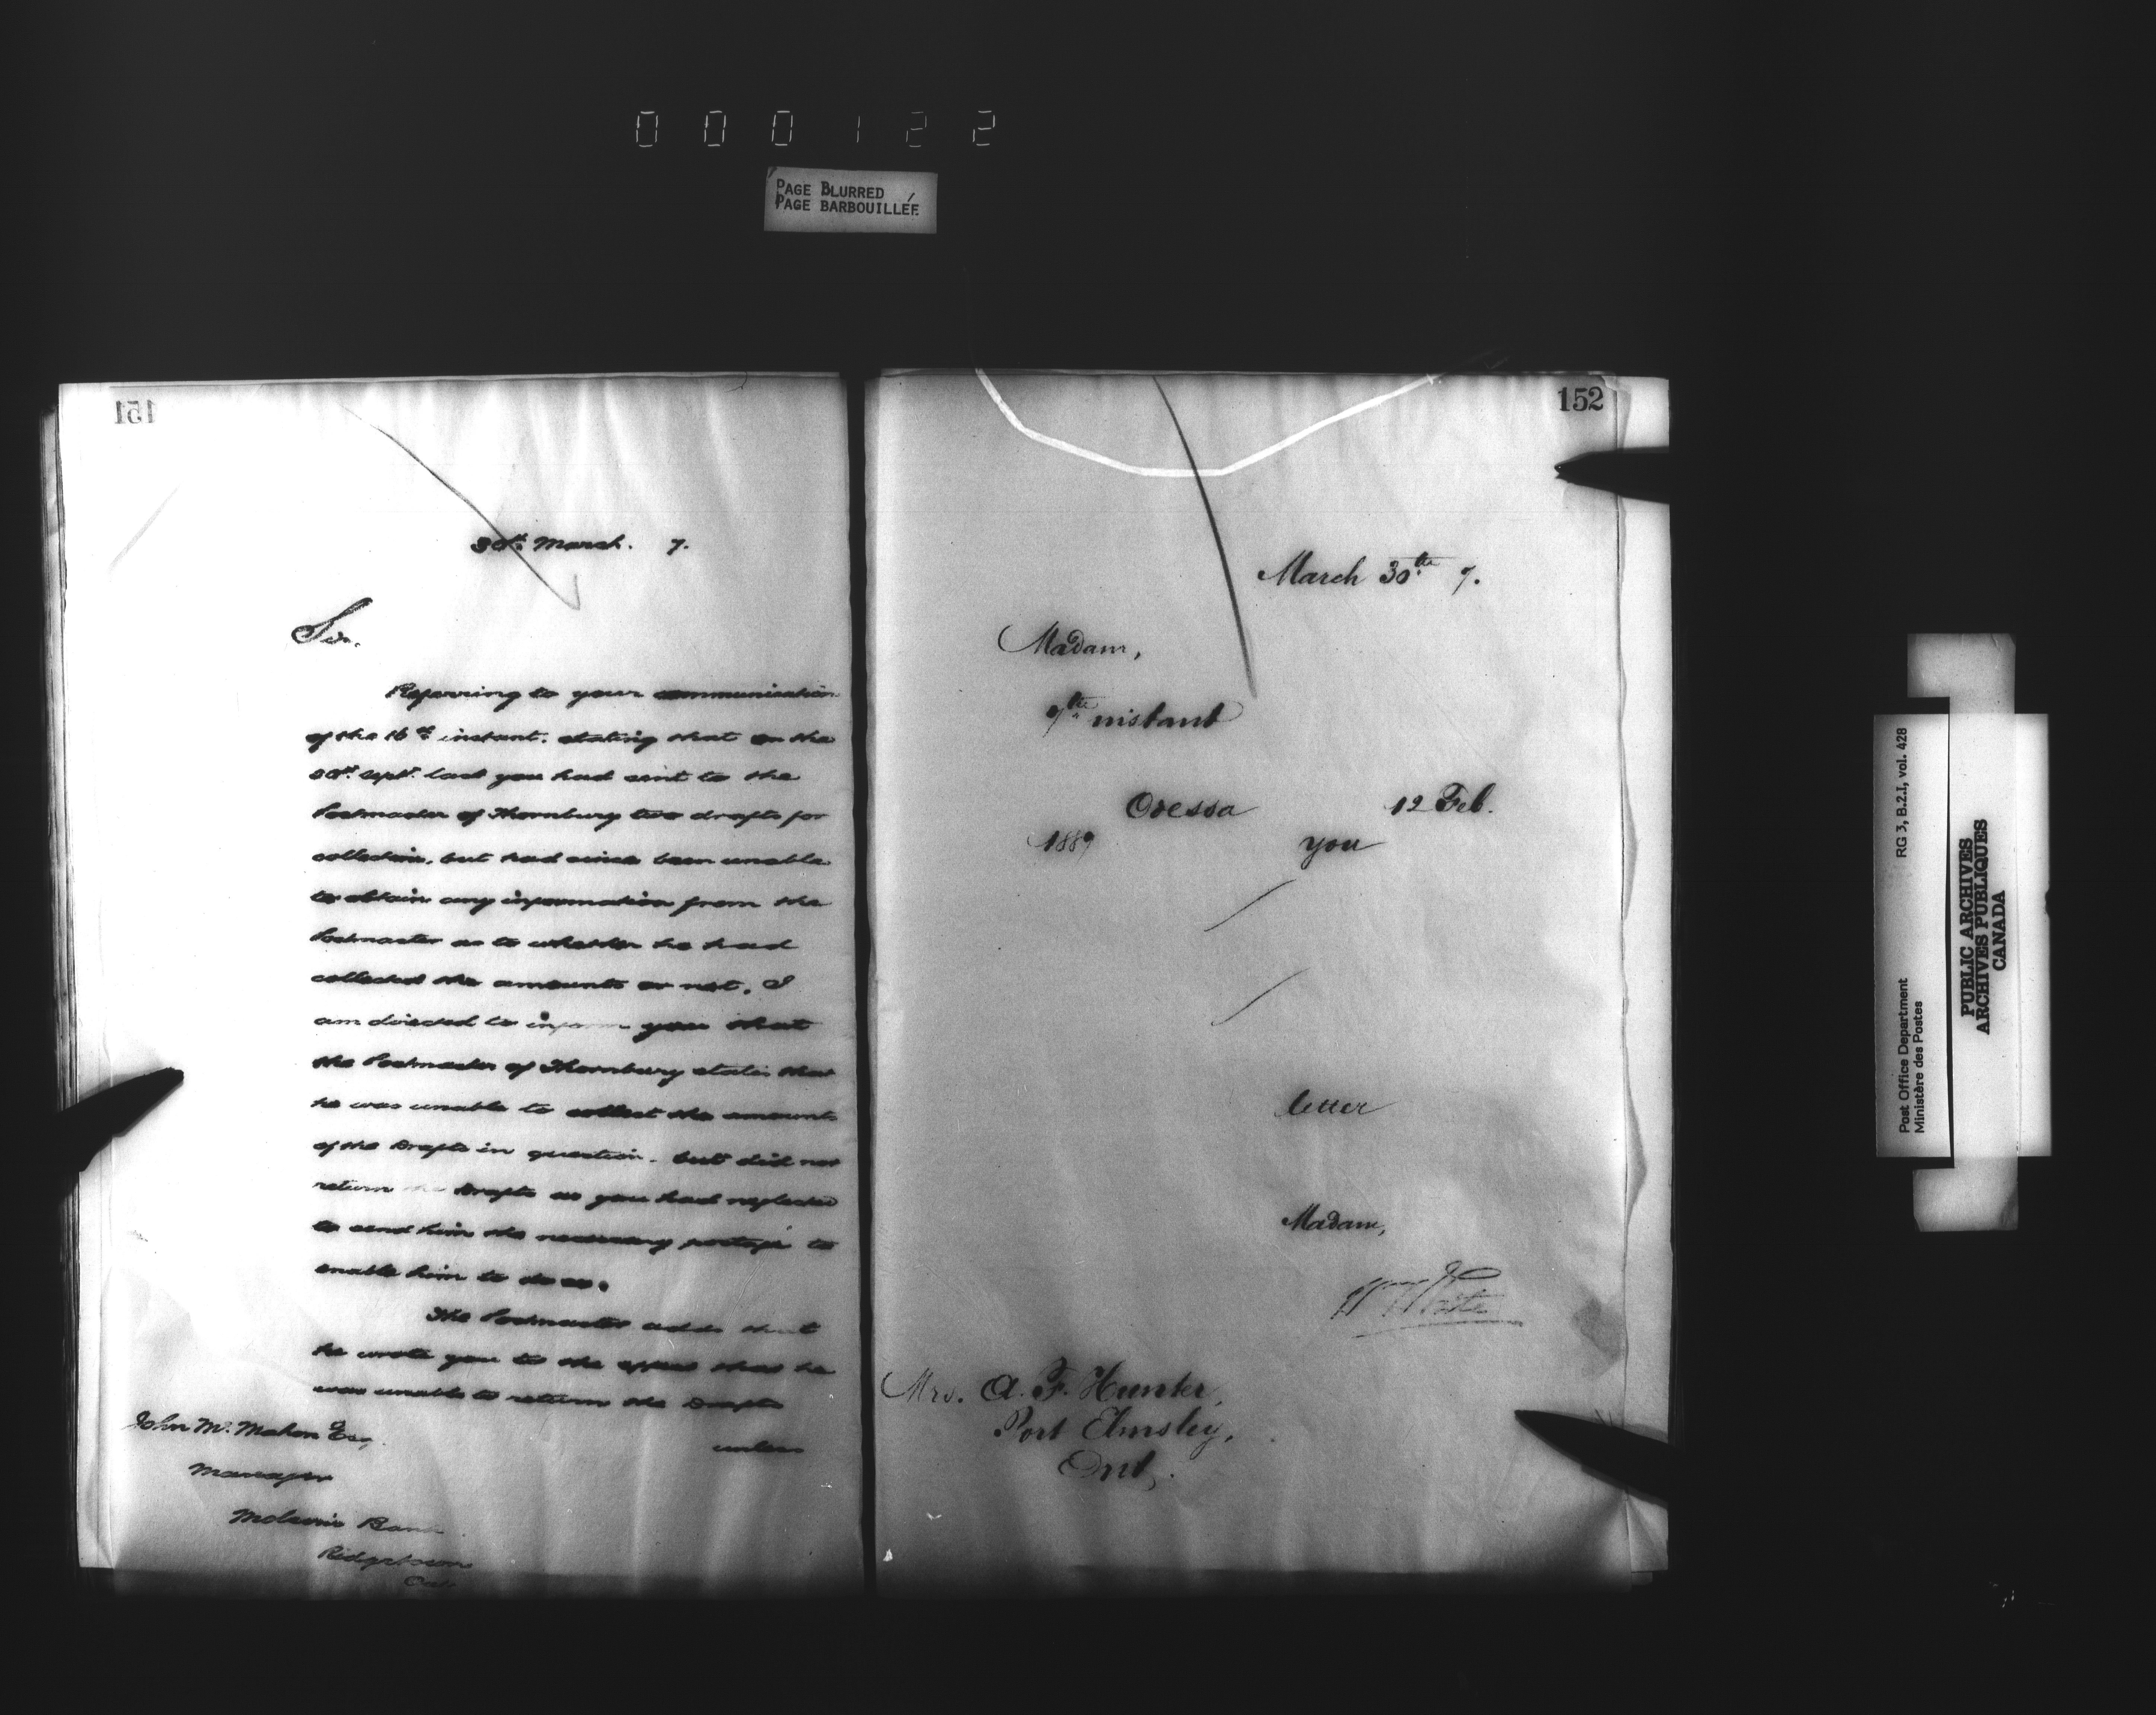 000122
PAGE BLURRED
PAGE BARBOUILLÉE
151
30th March. 7.
Sir.
Referring to your communication
of the 16th instant. stating that on the
30th Sept. last you had sent to the
Postmaster of Thornbury two drafts for
collection, but had since been unable
to obtain any information from the
Postmaster as to whether he had
collected the amounts or not, I
am directed to inform you that
the Postmaster of Thornbury states that
he was unable to collect the amounts
of the Drafts in question. but did not
return the Drafts as you had neglected
to send him the necessary postage to
enable him to do so.
The Postmaster adds that
he wrote you to the effect that he
was unable to return the Drafts
unless
John McMahon Esq.
Manager
Molsons Bank
Ridgetown
Ont
152
March 30th 7.
Madam,
9th instant
Odessa 12 Feb.
1889 you
letter
Madam,
Wm White
Mrs. A. F. Hunter,
Port Elmsley,
Ont.
RG 3, B.2.I, vol. 428
Post Office Department
Ministère des Postes
PUBLIC ARCHIVES
ARCHIVES PUBLIQUES
CANADA